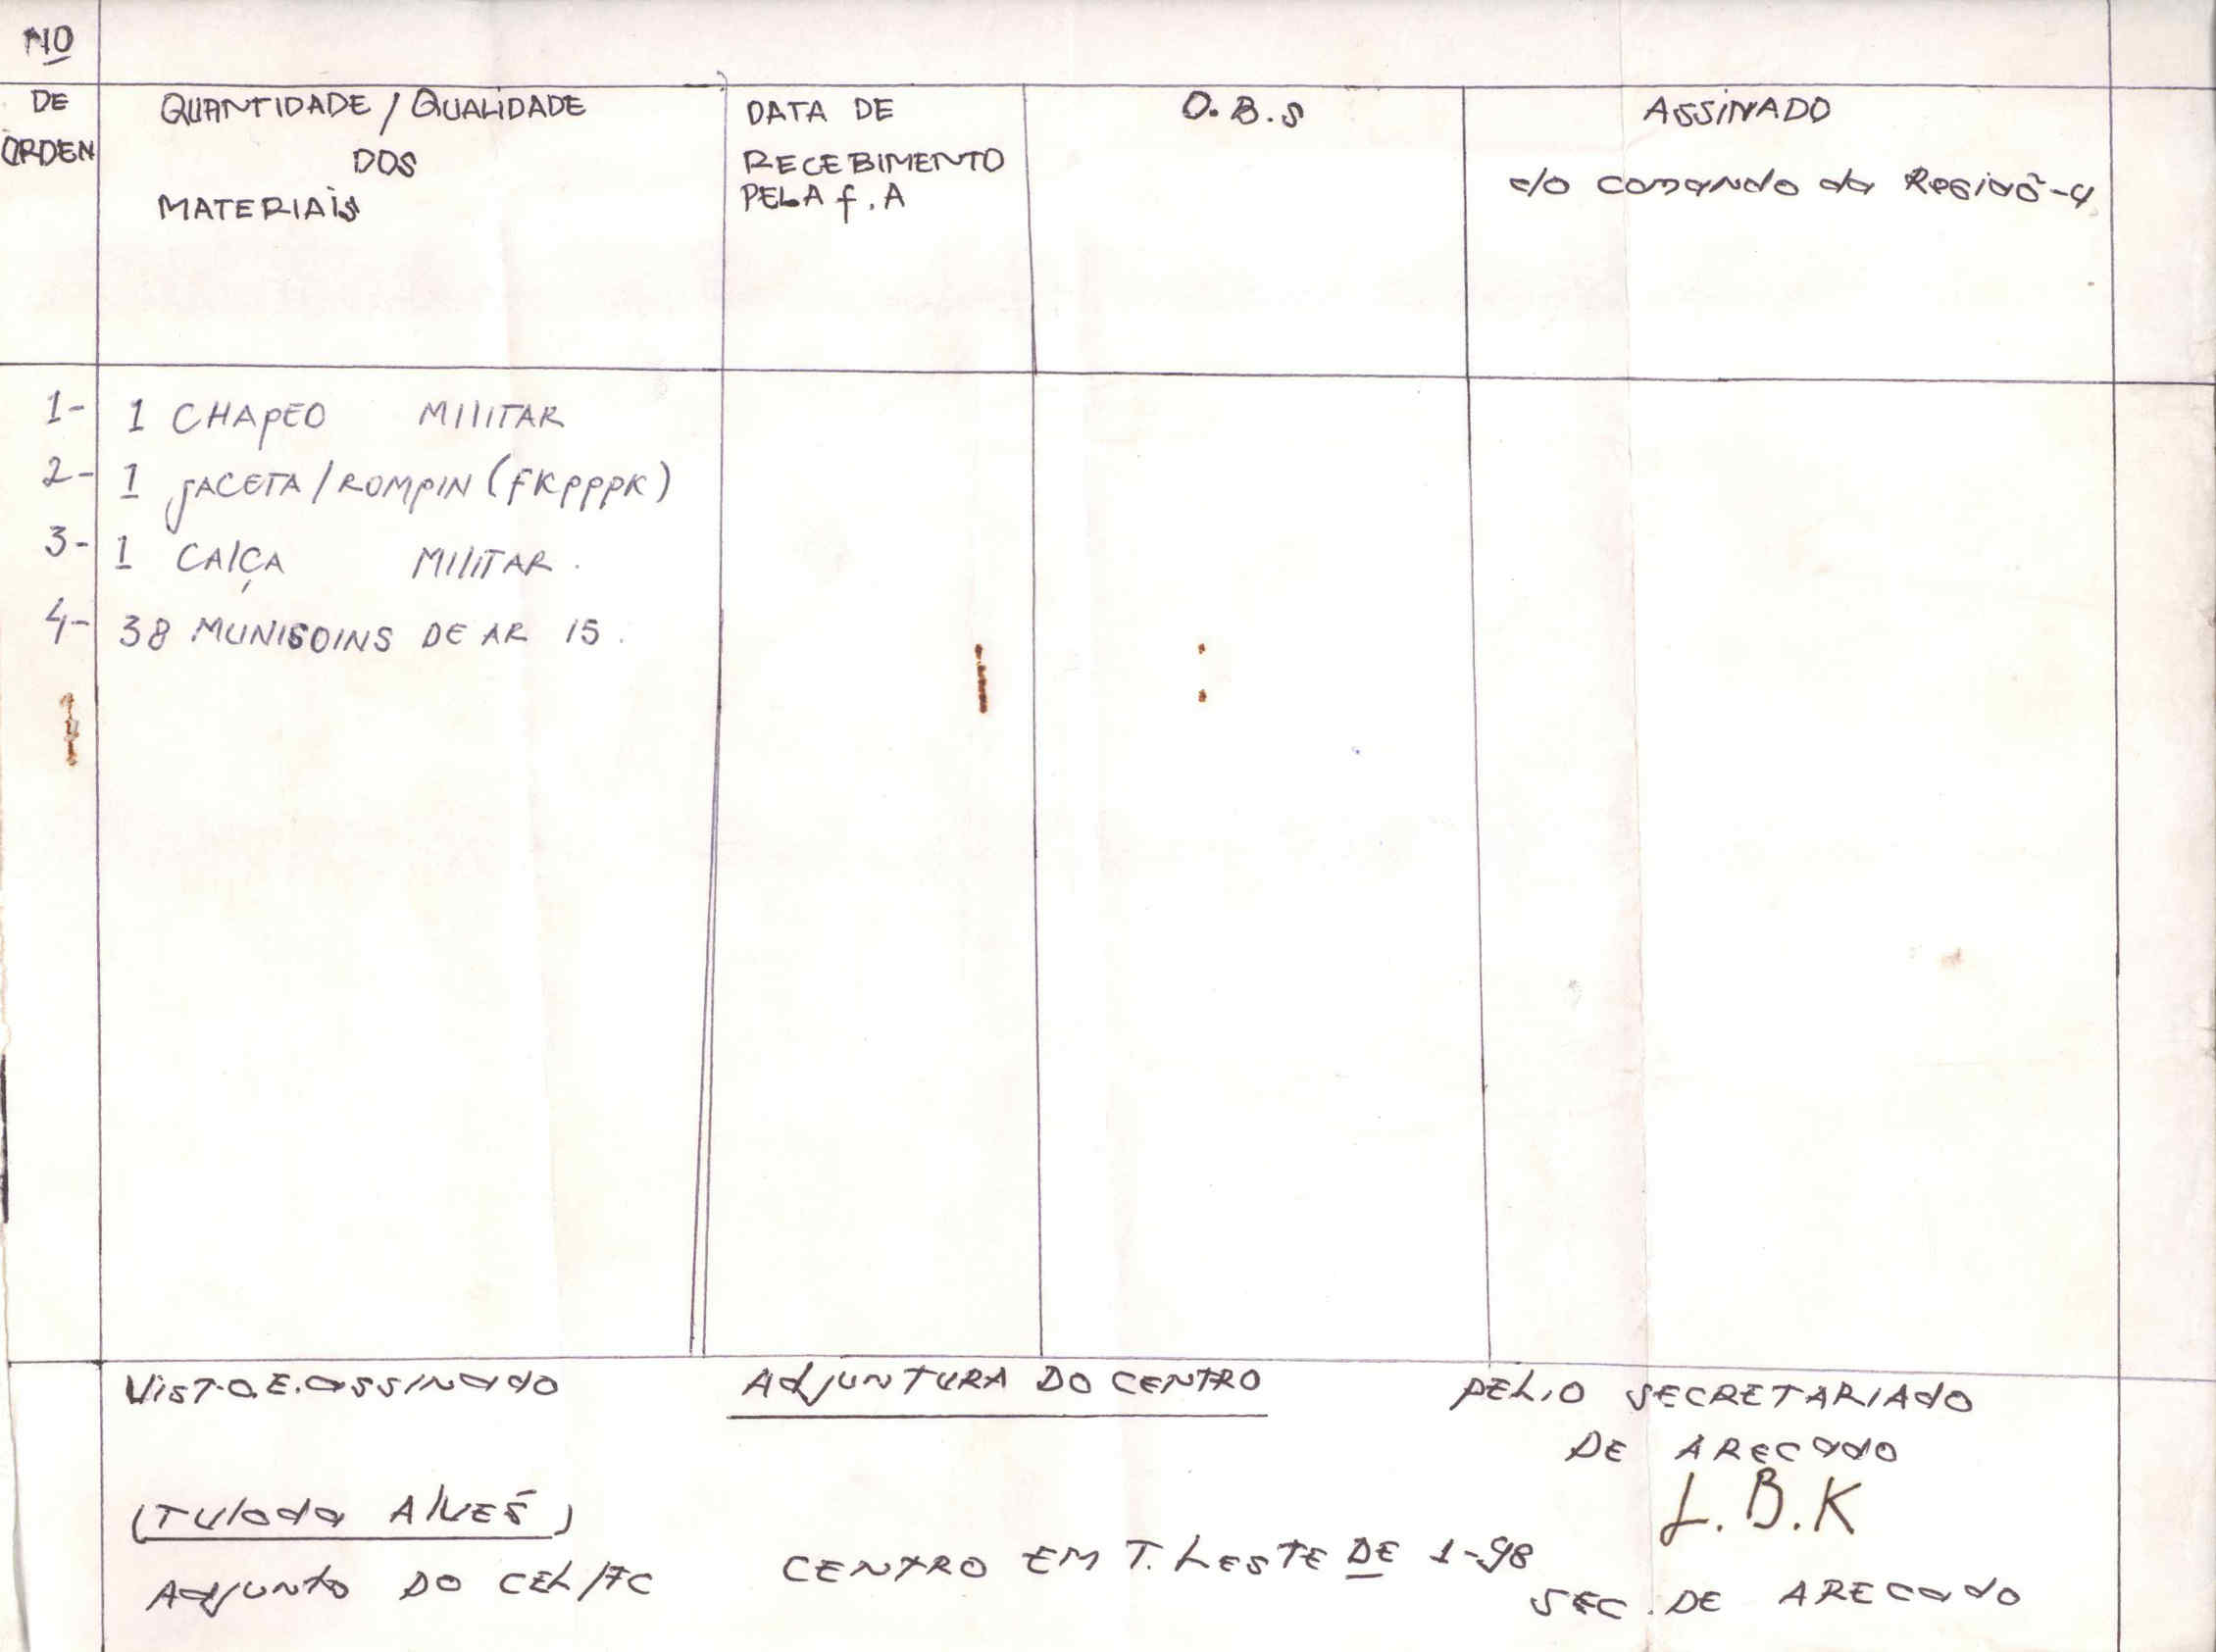 Nº
DE
ORDEN
QUANTIDADE / QUALIDADE
DOS
MATERIAIS
DATA DE
RECEBIMENTO
PELA f.A
O.B.S
ASSINADO
do comando da Regiaõ-4
1- 1 CHAPEO MILITAR
2- 1 JACETA/ROMPIN (FKPPPK)
3- 1 CALÇA MILITAR.
4- 38 MUNISOINS DE AR 15.
VIST.O.E.assinado
ADJUNTURA DO CENTRO
PEL,O SECRETARIAdO
DE ARECAdO
(Tuloda Alves)
L.B.K
Adjunto DO CEL/FC
CENTRO EM T. LESTE DE 1-98
SEC. DE ARECAdO